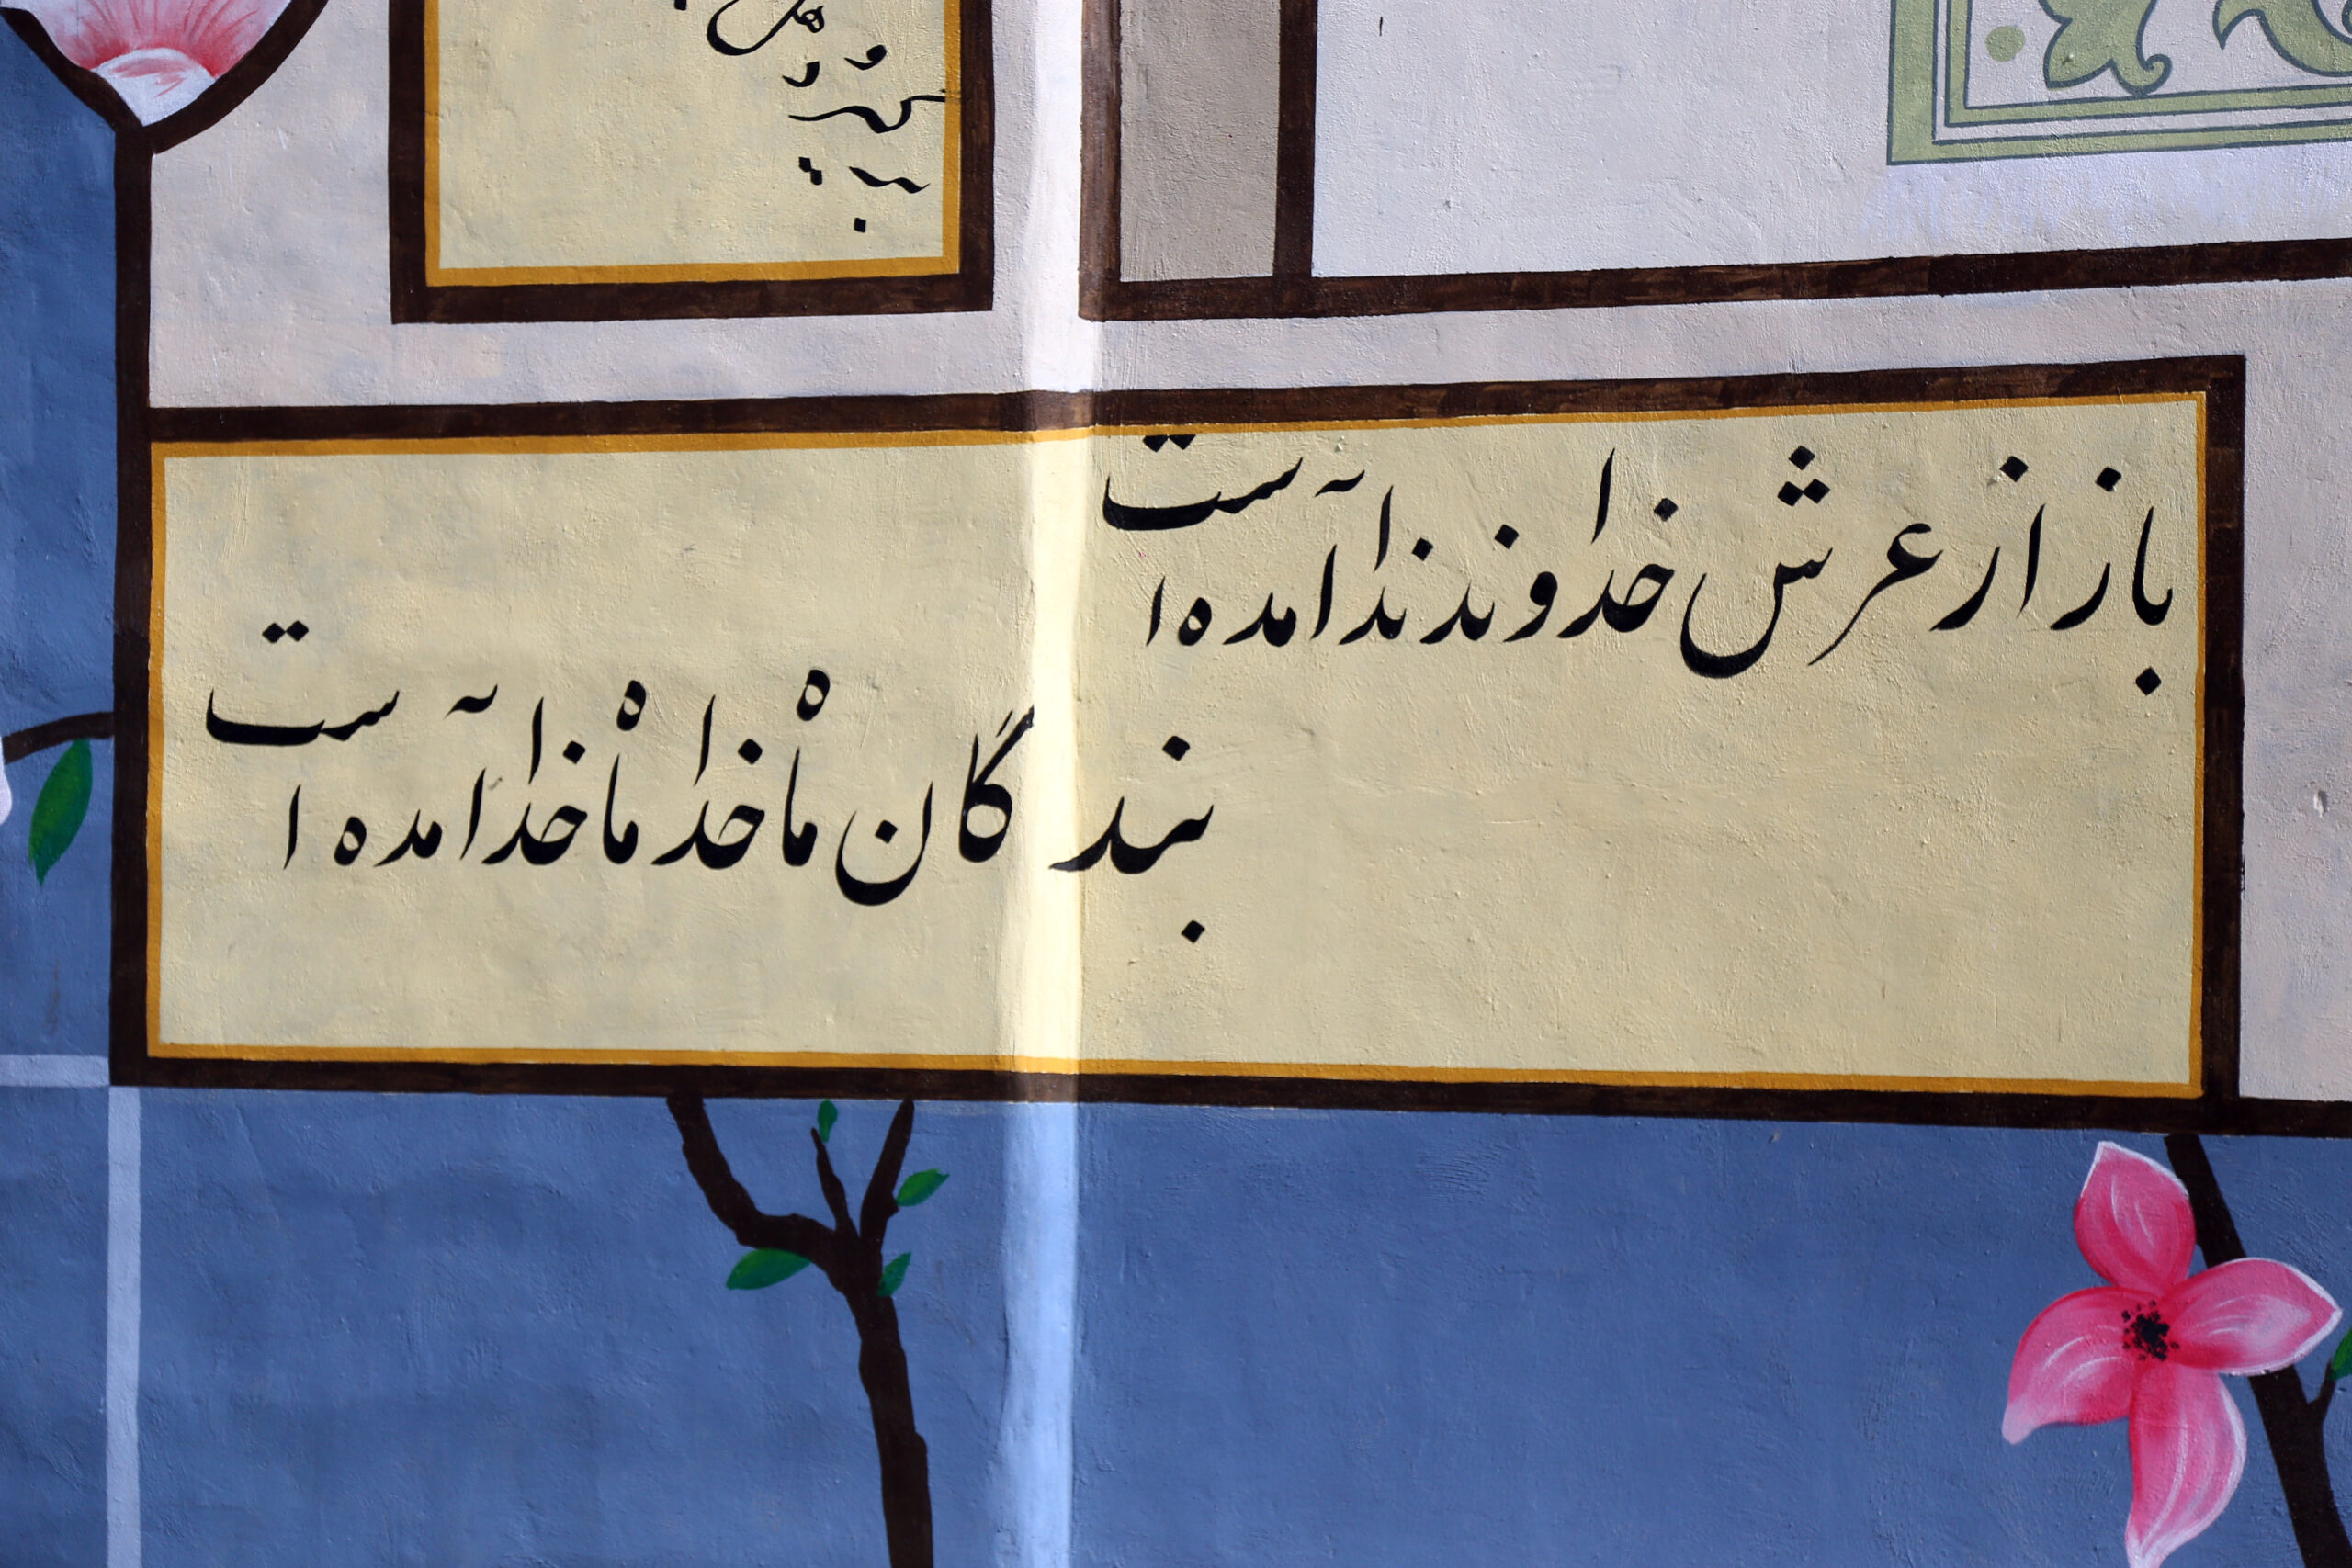 باز از عرش خداوند ندا آمده است
بندگان ماه خدا ماه خدا آمده است